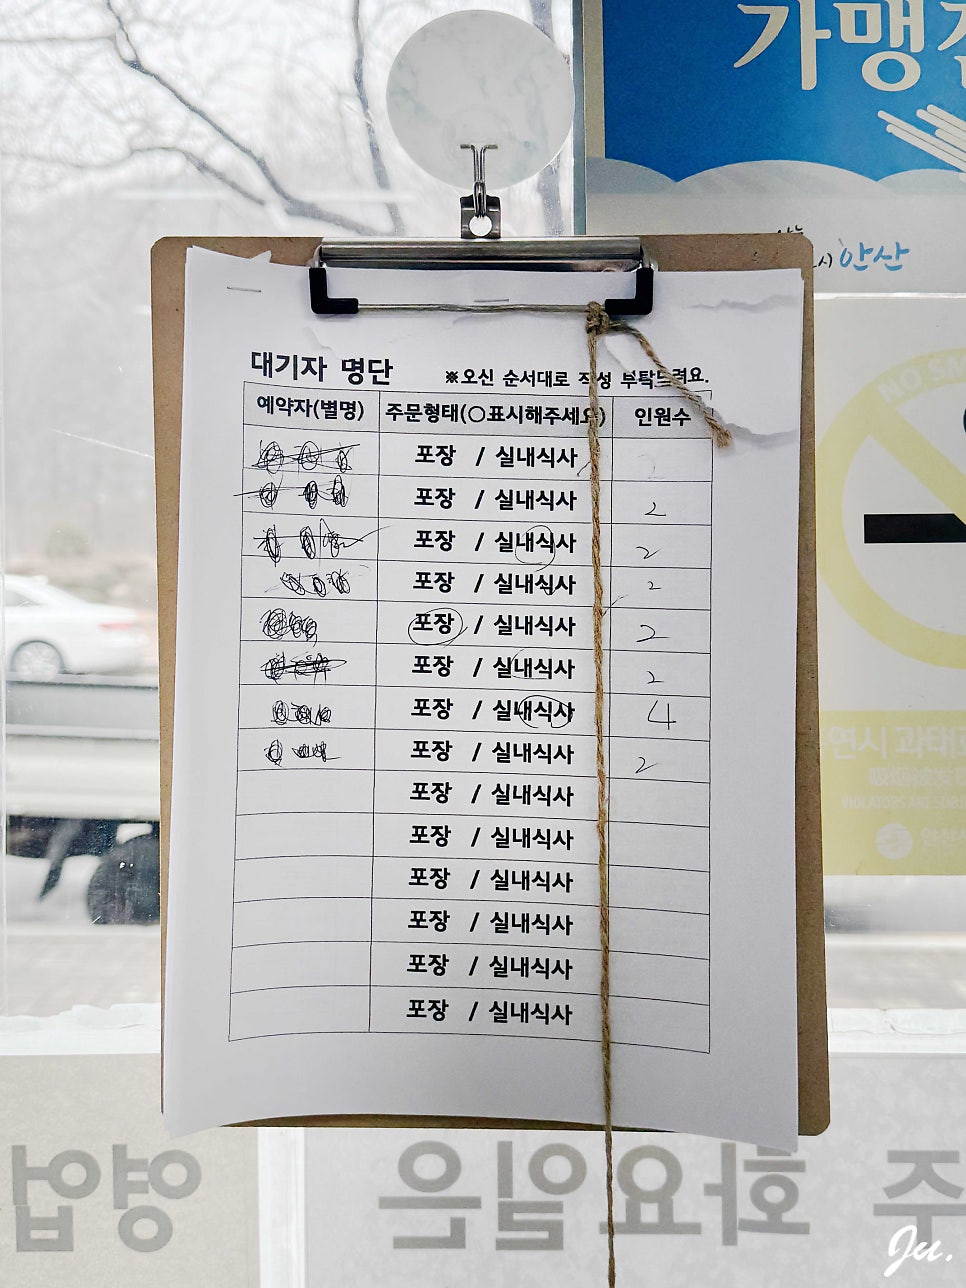 가맹점
안산
NO SM
대기자 명단 ※오신 순서대로 작성 부탁드려요.
예약자(별명) 주문형태(○표시해주세요) 인원수
포장 / 실내식사
포장 / 실내식사 2
포장 / 실내식사 2
포장 / 실내식사 2
포장 / 실내식사 2
포장 / 실내식사 2
포장 / 실내식사 4
포장 / 실내식사 2
포장 / 실내식사
포장 / 실내식사
포장 / 실내식사
포장 / 실내식사
포장 / 실내식사
포장 / 실내식사
VIOLATORS ARE SUB
주 화요일은 영업
Ju.